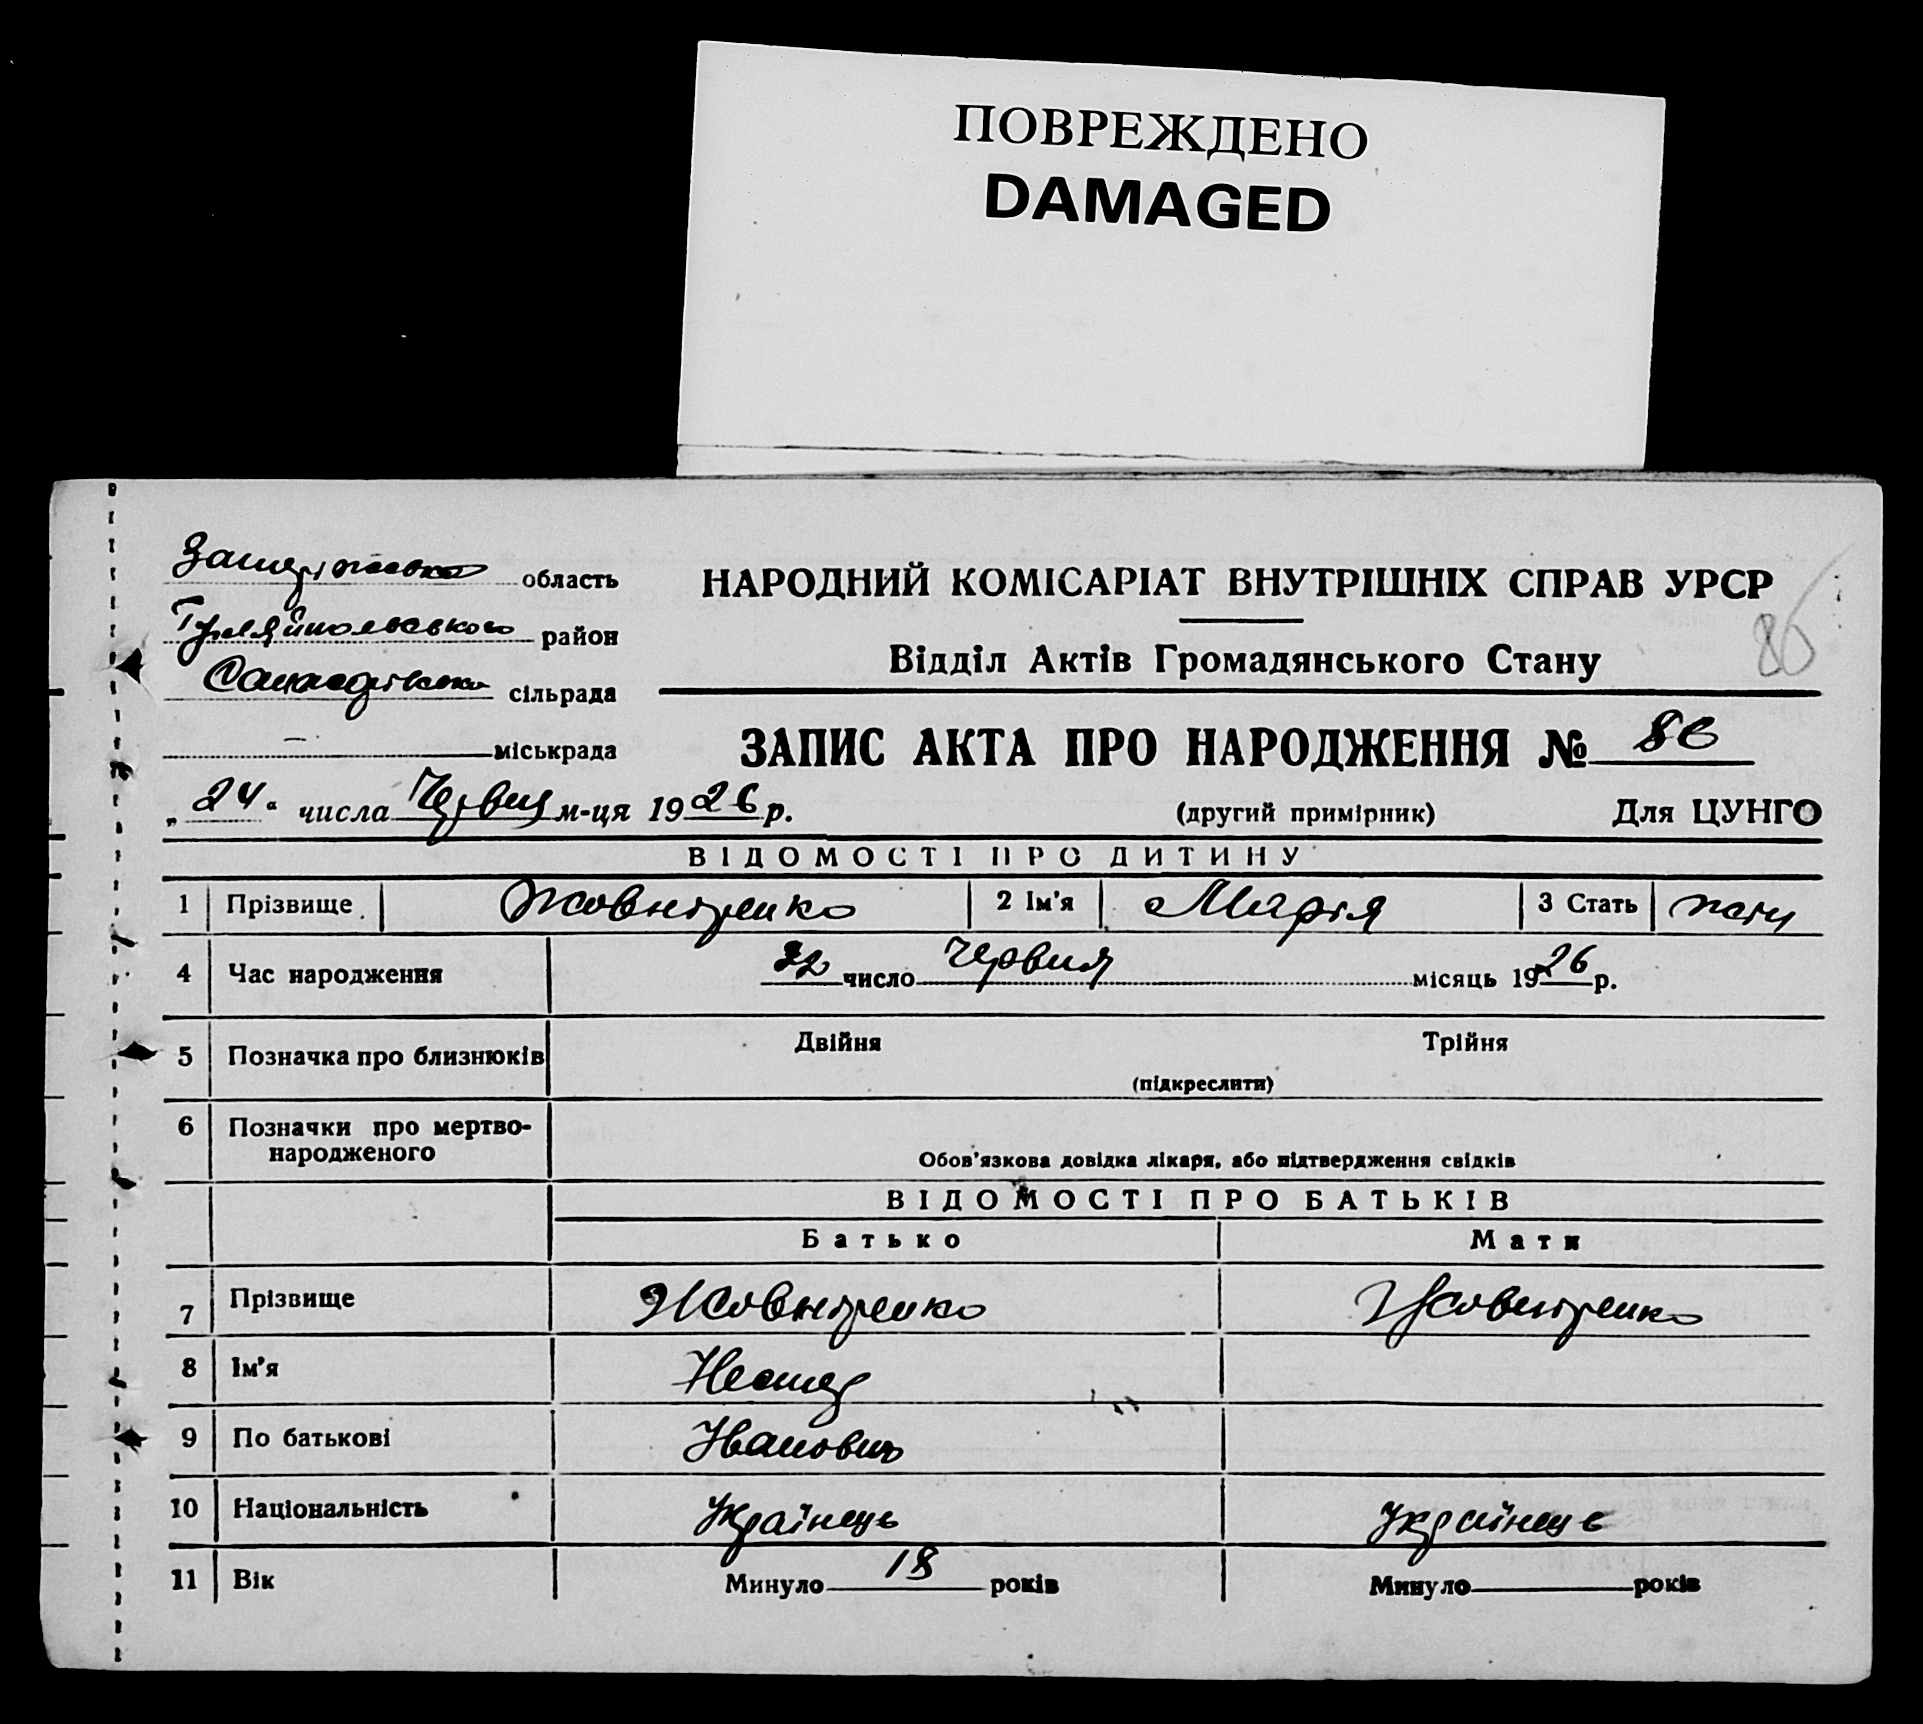 ПОВРЕЖДЕНО
DAMAGED
область
район
сільрада
міськрада
НАРОДНИЙ КОМІСАРІАТ ВНУТРІШНІХ СПРАВ УРСР
86
Відділ Актів Громадянського Стану
ЗАПИС АКТА ПРО НАРОДЖЕННЯ № 86
„24“ числа Червня м-ця 1926 р. (другий примірник) Для ЦУНГО
ВІДОМОСТІ ПРО ДИТИНУ
1 Прізвище Жовніренко 2 Ім'я Марія 3 Стать
4 Час народження 22 число Червня місяць 1926 р.
5 Позначка про близнюків Двійня Трійня
(підкреслити)
6 Позначки про мертво-
народженого
Обов'язкова довідка лікаря, або підтвердження свідків
ВІДОМОСТІ ПРО БАТЬКІВ
Батько Мати
7 Прізвище Жовніренко Жовніренко
8 Ім'я Нестер
9 По батькові Іванович
10 Національність Українець Українець
11 Вік Минуло 18 років Минуло років